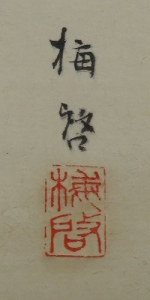 梅啓
梅啓